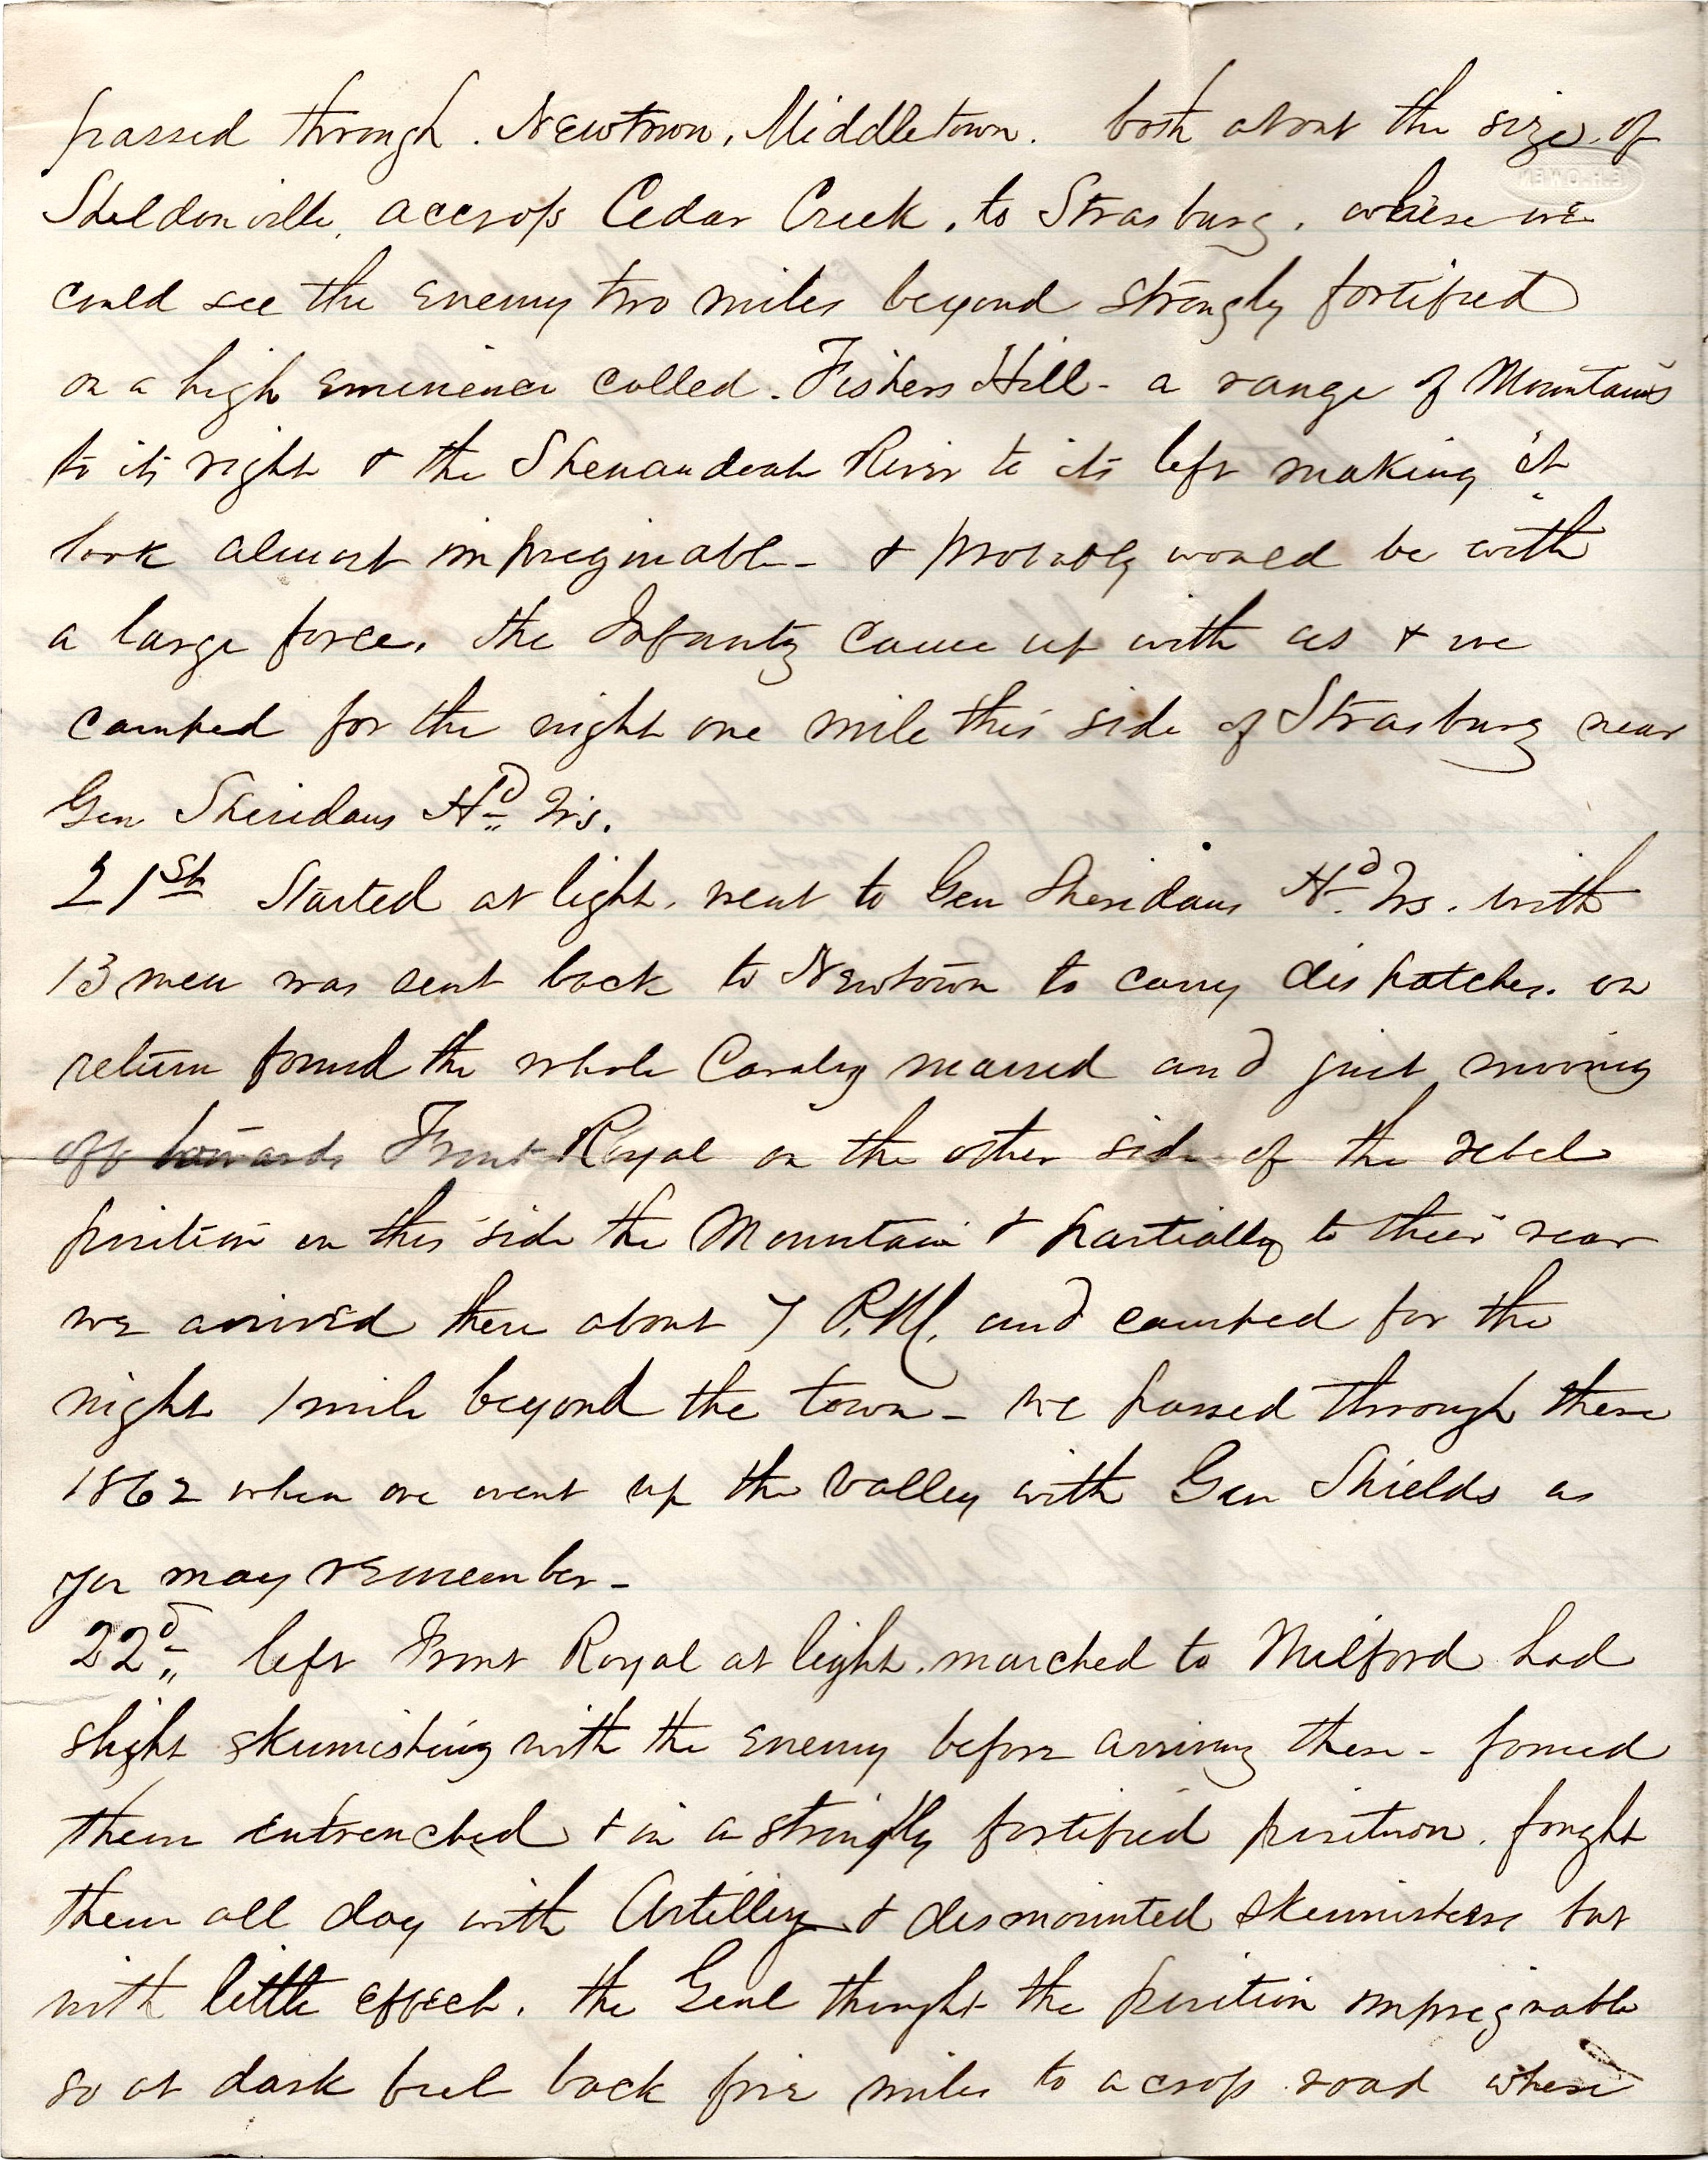 passed through. Newtown, Middletown. both about the size of
Sheldonville, accross Cedar Creek, to Strasburg, where we
could see the enemy two miles beyond strongly fortified
on a high eminence called. Fishers Hill - a range of Mountains
to its right & the Shenandoah River to its left making it
look almost impreginable - & probably would be with
a large force. the Infantry came up with us & we
camped for the night one mile this side of Strasburg near
Gen Sheridans Hd Qrs.
21st Started at light. went to Gen Sheridans Hd. Qrs. with
13 men was sent back to Newtown to carry dispatches. on
return found the whole Cavalry massed and just moving
off towards Front Royal on the other side of the rebel
position on this side the Mountain & partially to their rear
we arrived there about 7 P.M. and camped for the
night 1 mile beyond the town - we passed through there
1862 when we went up the valley with Gen Shields as
you may remember -
22d left Front Royal at light. marched to Milford had
slight skirmishing with the enemy before arriving there - found
them entrenched & in a strongly fortified position. fought
them all day with Artillery & dismounted skirmishers but
with little effect. the Genl thought the position impregnable
so at dark fell back five miles to a cross road where